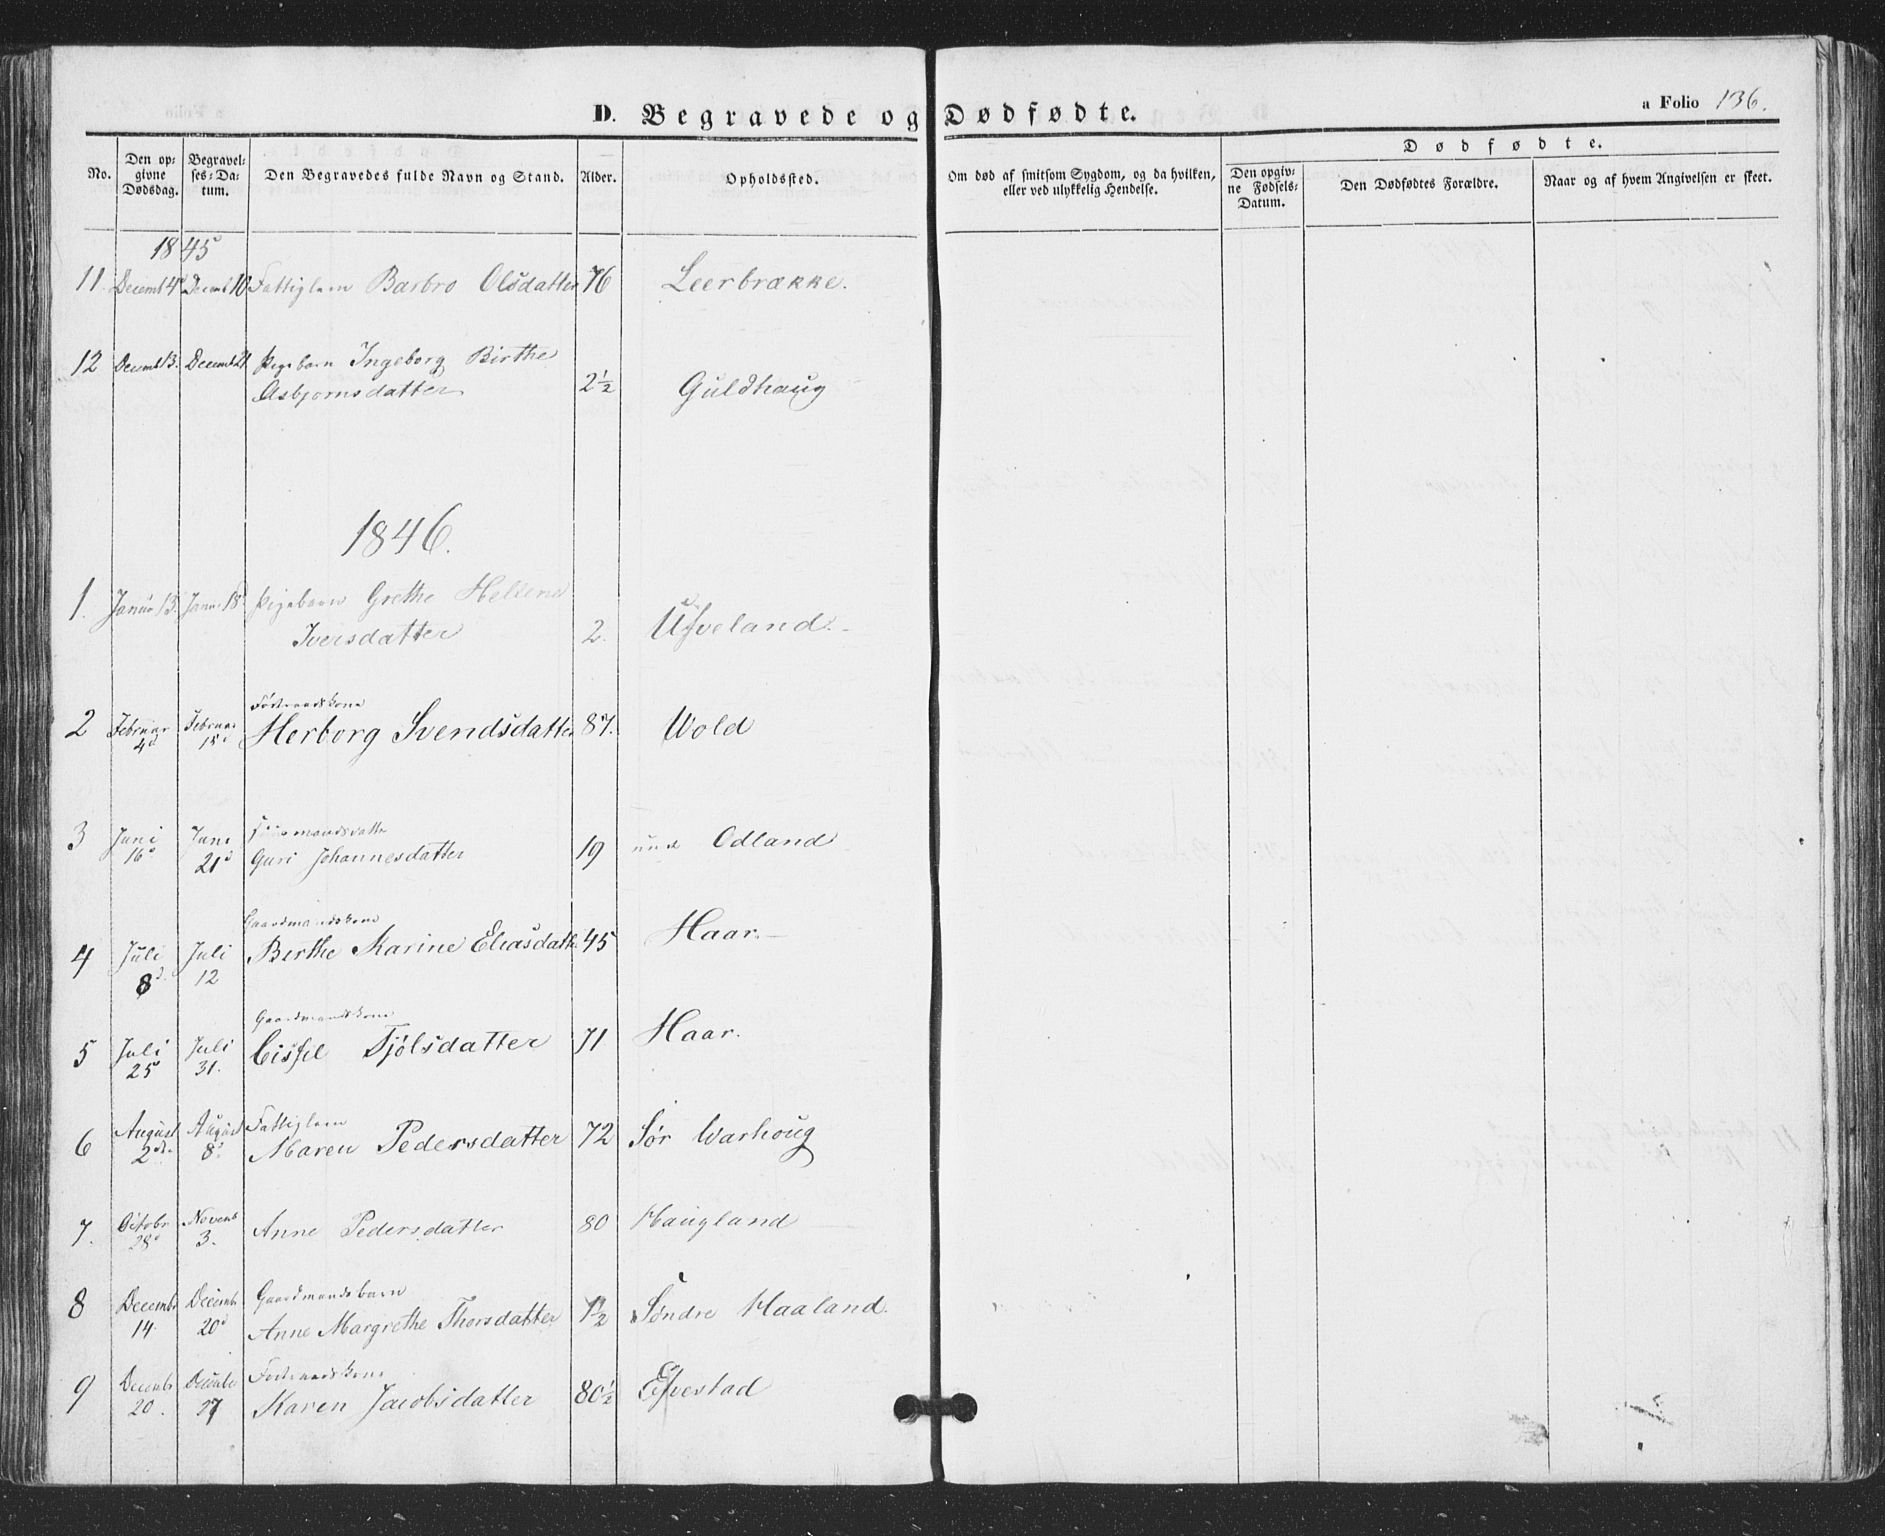 D. Begravede og Dødfødte.
a Folio 136.
No.
Den op-
givne
Dødsdag.
Begravel-
ses-Da-
tum.
Den Begravedes fulde Navn og Stand.
Alder.
Opholdssted.
Om død af smitsom Sygdom, og da hvilken,
eller ved ulykkelig Hendelse.
Dødfødte.
Den opgiv-
ne Fødsels-
Datum.
Den Dødfødtes Forældre.
Naar og af hvem Angivelsen er skeet.
1845
11 Decemb 4d Decemb 10 Fattiglem Barbro Olsdatter 76 Leerbrække.
12 Decemb 13. Decemb 21. Pigebarn Ingeborg Birthe
Asbjornsdatter 2½ Guldhaug
1846.
1. Janua 13. Janu 18. Pigebarn Grethe Hellene
Iversdatter 2. Ufveland.
Føderaadskone
2 Februar Februar Herborg Svendsdatter 87. Wold
4d 15d
3 Juni Juni
16d 21d Guri Johannesdatter 19 Odland
Gaardmandskone
4 Juli Juli Berthe Karine Eliasdatt. 45 Haar.
8d 12
Gaardmandskone
5 Juli Juli Cissil Tjølsdatter 71 Haar.
25 31.
6 August August Fattiglem
2den 8d Maren Pedersdatter 72 Sør Warhoug
7. Octobr Novemb Anne Pedersdatter 80 Haugland
28d 3.
8 Decemb Decemb Gaardmandsbarn
14. 20d Anne Margrethe Thorsdatter 1½ Søndre Haaland.
9 Decemb Decembr Føderaadskone
20. 27 Karen Jacobsdatter 80½ Efvestad